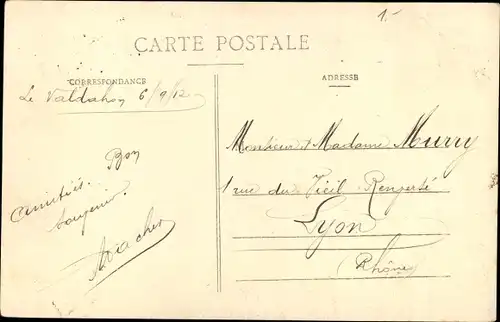 1.-
CARTE POSTALE
CORRESPONDANCE
ADRESSE
Le Valdahon 6/9/12
Bon
Amitiés.
souvenir.
Monsieur & Madame Murry
1 rue du Vieil Renversé
Lyon
(Rhône)